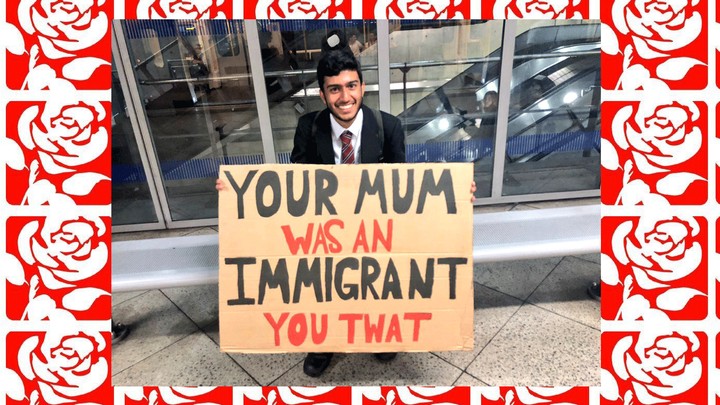 YOUR MUM
WAS AN
IMMIGRANT
YOU TWAT